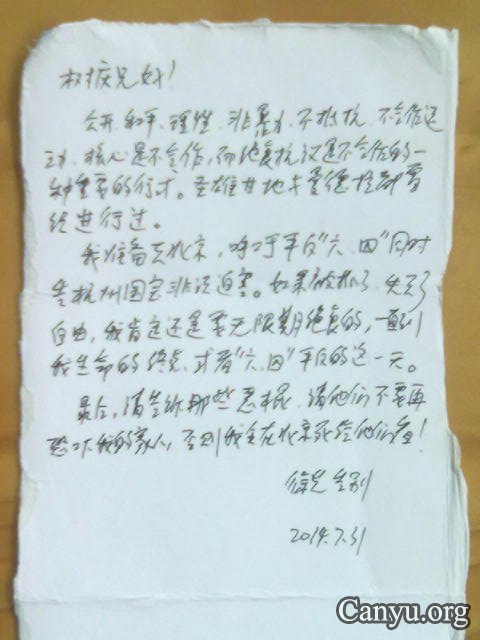 权振兄好！
公开、和平、理性、非暴力、不抵抗、不合作运
动，核心是不合作，而绝食抗议是不合作的一
种重要的行才。圣雄甘地与曼德拉都曾
经进行过。
我准备去北京，呼吁平反“六、四”同时
告杭州国宝非法迫害。如果被抓了，失去了
自由，我肯定还是要无限期绝食的，一直到
我生命的终点，或者“六、四”平反的这一天。
最后，请告诉那些恶棍，请他们不要再
恐吓我的家人，否则我会在北京死给他们看！
徐光 告别
2014.7.31
Canyu.org